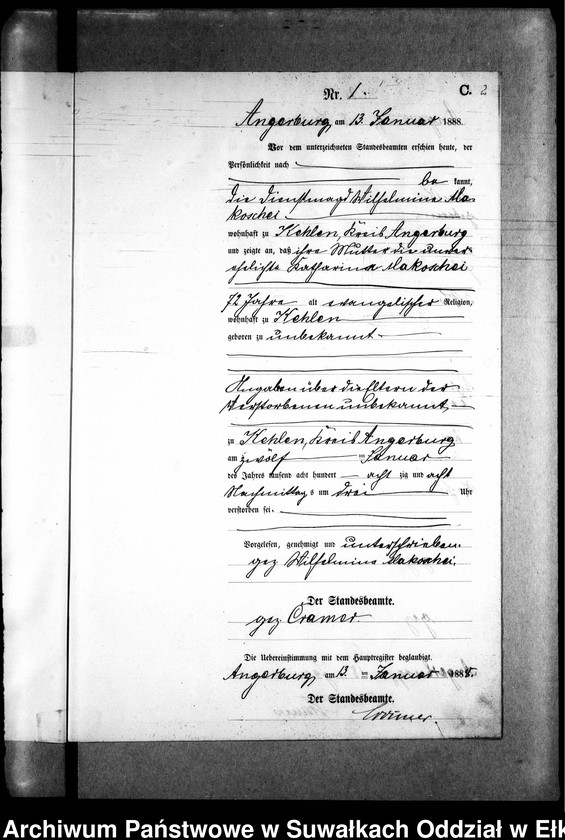 Nr. 1. C. 2
Angerburg am 13. Januar 1888.
Vor dem unterzeichneten Standesbeamten erschien heute, der
Persönlichkeit nach
be kannt,
die Dienstmagd Wilhelmine Ma-
koschei
wohnhaft zu Kehlen, Kreis Angerburg
und zeigte an, daß ihre Mutter die unver-
ehelichte Katharina Makoschei
72 Jahre alt evangelischer Religion,
wohnhaft zu Kehlen
geboren zu unbekannt
Angaben über die Eltern der
Verstorbenen unbekannt
zu Kehlen, Kreis Angerburg
am zwölf ten Januar
des Jahres tausend acht hundert acht zig und acht
Nachmittags um drei Uhr
verstorben sei.
Vorgelesen, genehmigt und unterschrieben.
gez Wilhelmine Makoschei.
Der Standesbeamte.
gez Cramer
Die Uebereinstimmung mit dem Hauptregister beglaubigt.
Angerburg, am 13. ten Januar 1888.
Der Standesbeamte.
Cramer.
Archiwum Państwowe w Suwałkach Oddział w Ełk